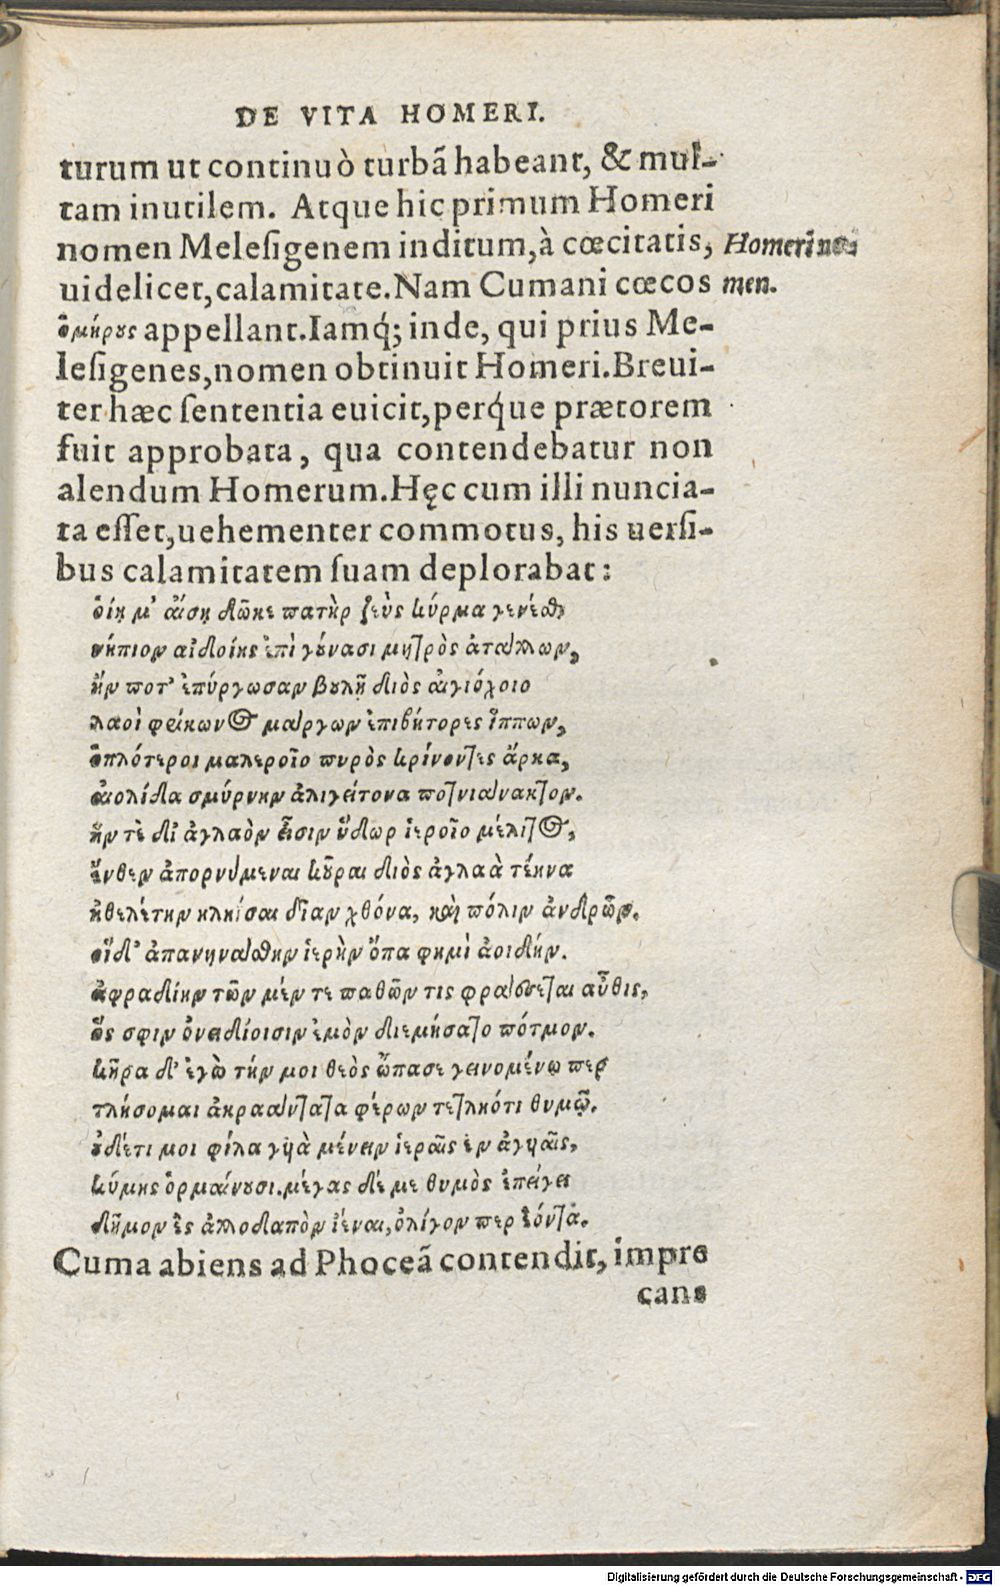 DE VITA HOMERI.
turum ut continuò turbã habeant, & mul-
tam inutilem. Atque hic primum Homeri
nomen Melesigenem inditum, à cœcitatis,
Homeri no-
uidelicet, calamitate. Nam Cumani cœcos
men.
ὁμήρους appellant. Iamq́; inde, qui prius Me-
lesigenes, nomen obtinuit Homeri. Breui-
ter hæc sententia euicit, perq́ue prætorem
fuit approbata, qua contendebatur non
alendum Homerum. Hęc cum illi nuncia-
ta esset, uehementer commotus, his uersi-
bus calamitatem suam deplorabat:
οἵῃ μ' αἴσῃ δῶκε πατὴρ ζεὺς κύρμα γενέσθαι
νήπιον αἰδοίης ἐπὶ γούνασι μητρὸς ἀταλλων,
ἥν ποτ' ἐπύργωσαν βουλῇ διὸς αἰγιόχοιο
λαοὶ φείκωνος μάργων ἐπιβήτορες ἵππων,
ὁπλότεροι μαλεροῖο πυρὸς κρίνοντες ἄρηα,
αἰολίδα σμύρνην ἁλιγείτονα ποτνιάνακτον.
ἥν τὲ δι' ἀγλαὸν εἶσιν ὕδωρ ἱεροῖο μέλητος,
ἔνθεν ἀπορνύμεναι κοῦραι διὸς ἀγλαὰ τέκνα
ἠθελέτην κλῄσαι δῖαν χθόνα, καὶ πόλιν ἀνδρῶν.
οἵδ' ἀπανηνάσθην ἱερὴν ὄπα φημὶ ἀοιδήν.
ἀφραδίην τῶν μέν τε παθῶν τις φράσσεται αὖθις,
ὅς σφιν ὀνειδίοισιν ἐμὸν διεμήσατο πότμον.
κῆρα δ' ἐγὼ τήν μοι θεὸς ὤπασε γεινομένῳ περ
τλήσομαι ἀκράαντατα φέρων τετληκότι θυμῷ.
οὐδέτι μοι φίλα γυῖὰ μένειν ἱεραῖς ἐν ἀγυιαῖς,
κύμης ὁρμαίνουσι. μέγας δέ με θυμὸς ἐπείγει
δῆμον ἐς ἀλλοδαπὸν ἰέναι, ὀλίγον περ ἐόντα.
Cuma abiens ad Phoceã contendit, impre
cans
Digitalisierung gefördert durch die Deutsche Forschungsgemeinschaft - DFG